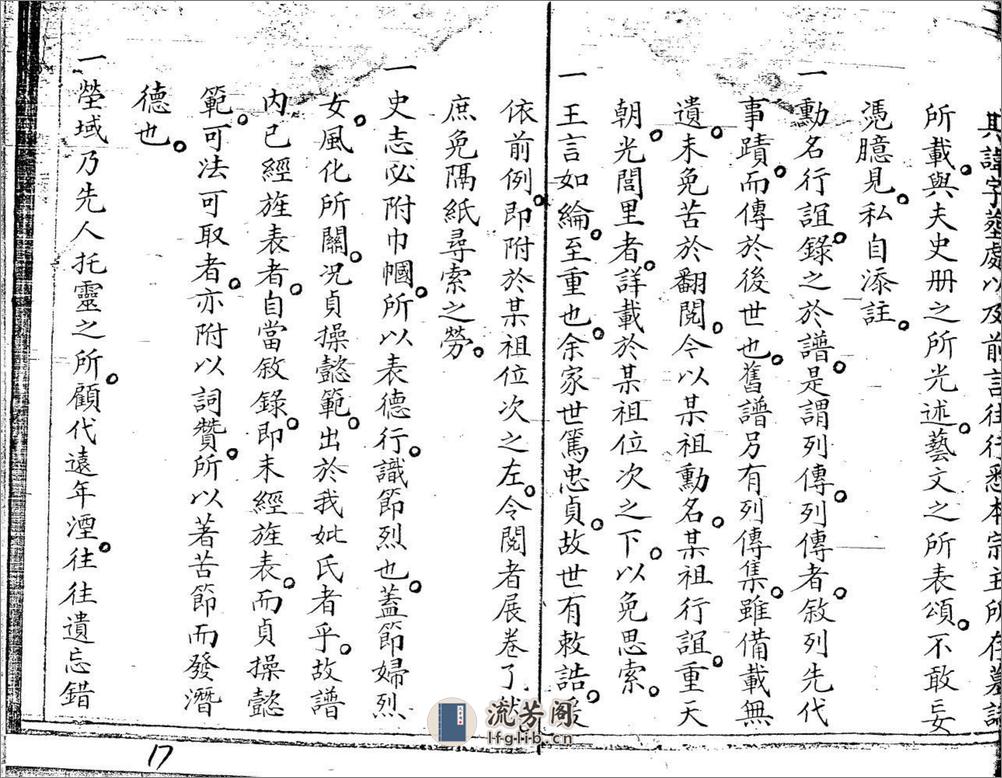 其諱字塟處以及前言往行悉本宗主所存墓誌
所載與夫史册之所光述藝文之所表頌不敢妄
憑臆見私自添註
一勳名行誼錄之於譜是謂列傳列傳者敘列先代
事蹟而傳於後世也舊譜另有列傳集雖備載無
遺未免苦於翻閱今以某祖勳名某祖行誼重天
朝光閭里者詳載於某祖位次之下以免思索
一王言如綸至重也余家世篤忠貞故世有敕誥爰
依前例即附於某祖位次之左令閱者展卷了
庶免隔紙尋索之勞
一史志必附巾幗所以表德行識節烈也蓋節婦烈
女風化所關况貞操懿範出於我妣氏者乎故譜
内已經旌表者自當敘錄即未經旌表而貞操懿
範可法可取者亦附以詞贊所以著苦節而發潛
德也
一塋域乃先人托靈之所顧代遠年湮往往遺忘錯
17
流芳阁
lfglib.cn